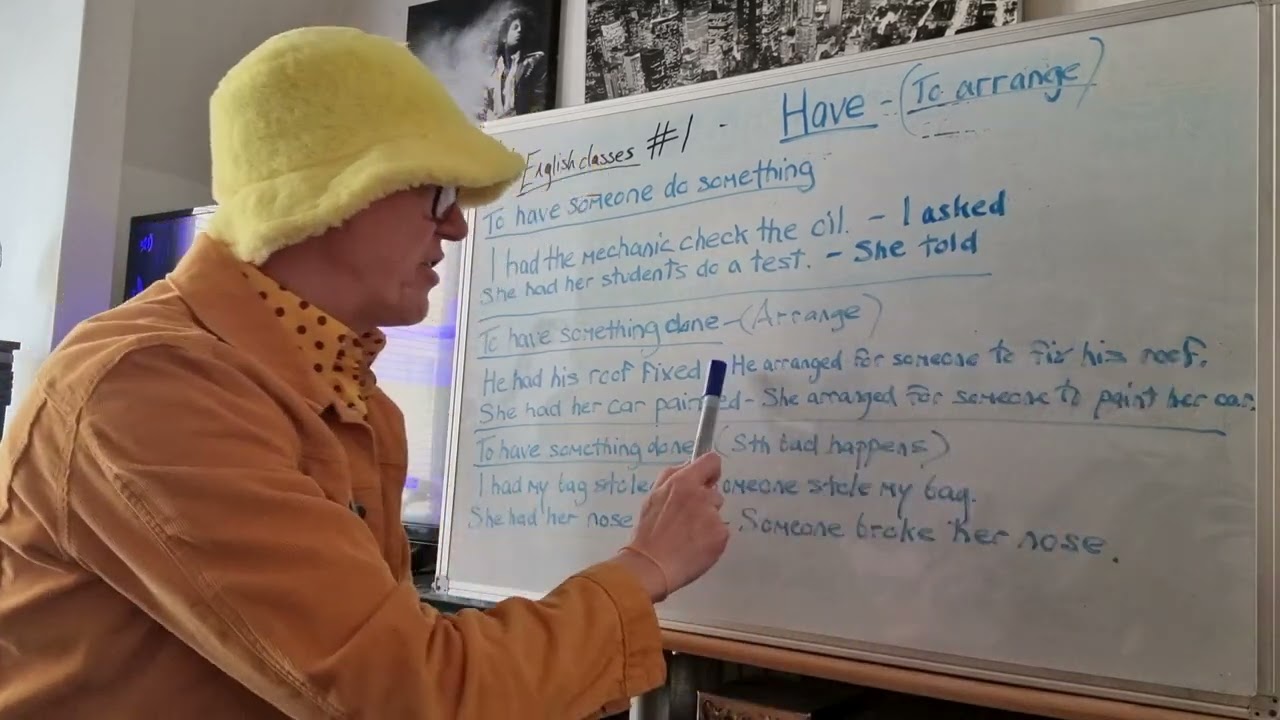 English classes #1 - Have - (To arrange)
To have someone do something
I had the mechanic check the oil. - I asked
She had her students do a test. - She told
To have something done - (Arrange)
He had his roof fixed He arranged for someone to fix his roof.
She had her car painted - She arranged for someone to paint her car.
To have something done (Sth bad happens)
I had my bag stole omeone stole my bag.
She had her nose Someone broke her nose.